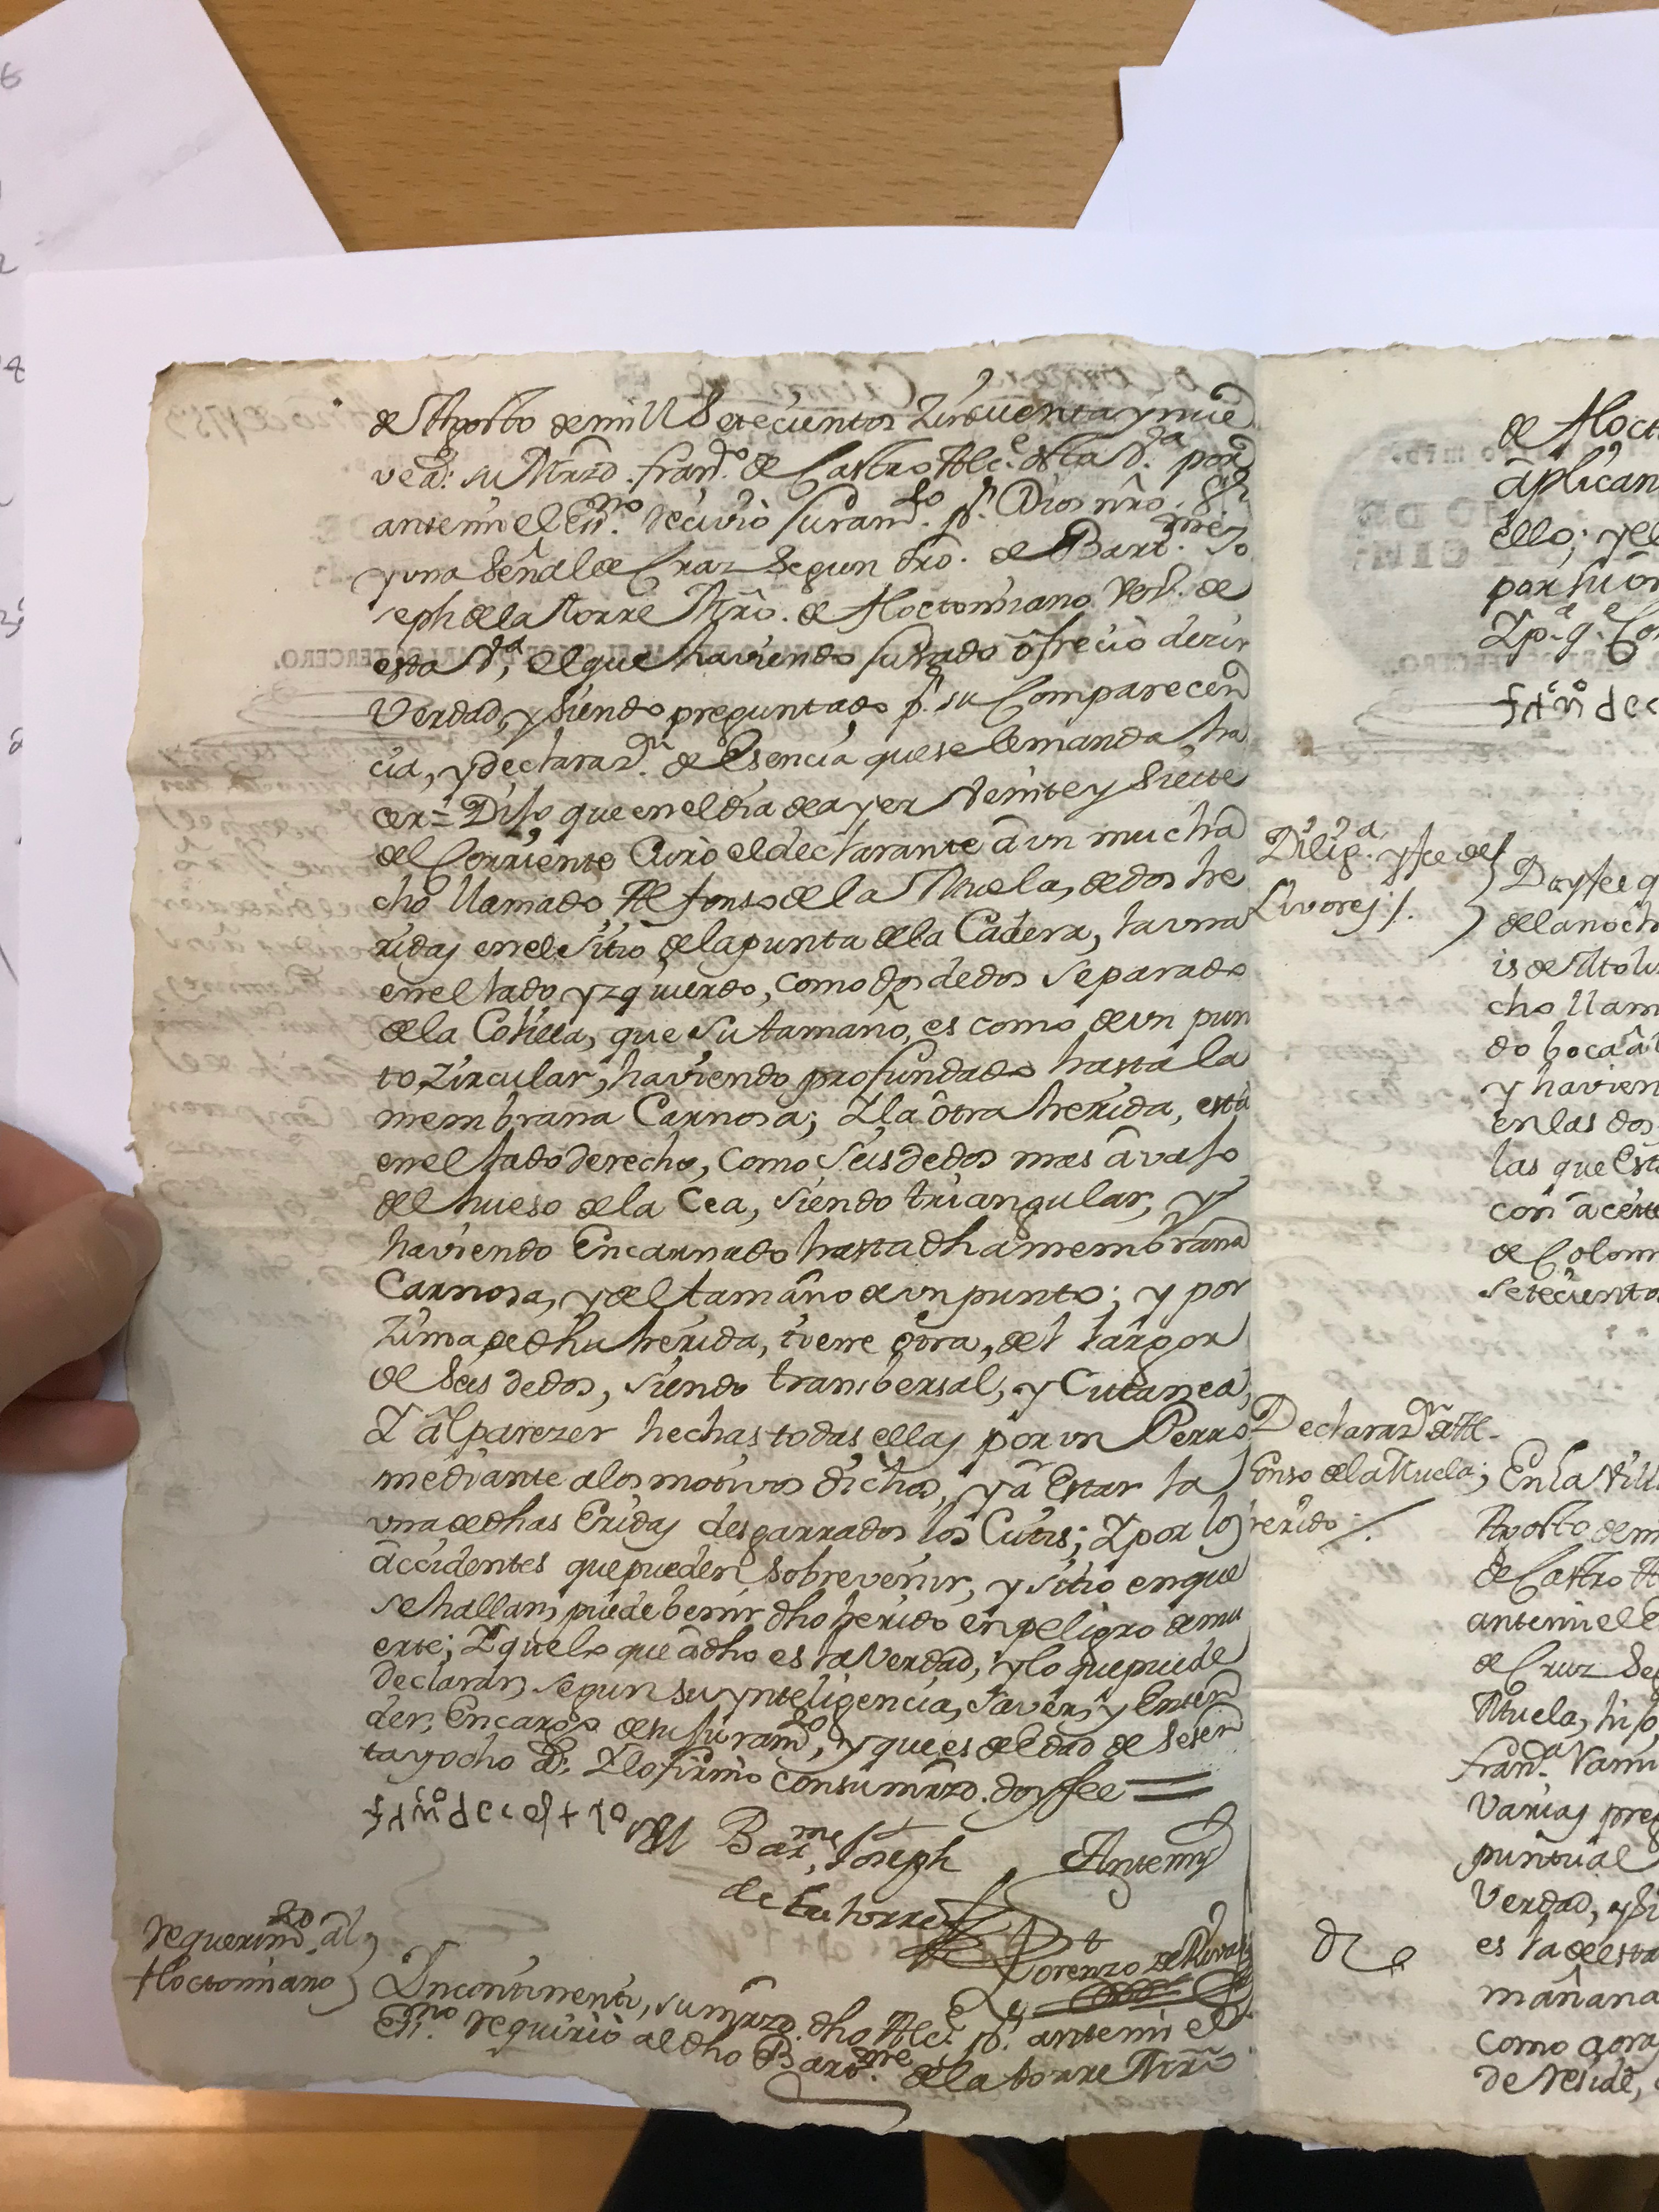 de Agosto de mill Setecientos Zincuenta y nue
ve a.s su Mrzd. fran.co de Castro Alc.e desta V.a por
ante mi el Ess.no recivió Juram.to p.r Dios nrô. S.r
y una Señal de Cruz Segun drô. de Bart.me Jo
seph de la torre Mrô. de Aloctoniano Vez.o de
esta V.a, el que haviendo Jurado ôfreció dezir
Verdad, y Siendo preguntado p.r su Comparecen
cia, y declaraz.n de Esencia que se le manda ha
cer = Dijo que en el dia de ayer Veinte y Siete
del Corriente Curó el declarante â un mucha
cho llamado Alfonso de la Muela, de dos he
ridas en el Sitio de la punta de la Cadera, la una
en el lado yzquierdo, como dos dedos Separado
de la Colilla, que su tamaño, es como de un pun
to Zircular, haviendo profundado hasta la
membrana Carnosa; Y la ôtra herida, està
en el lado derecho, como Seis dedos mas âvajo
del hueso de la Cea, siendo triangular, y
haviendo Encarnado hasta dha membrana
Carnosa, y del tamâño de un punto; y por
Zima de dha herida, tiene ôtra, del largor
de Seis dedos, siendo transbersal, y Cutanea,
Y âl parezer hechas todas ellas por un Perro
mediante a los motivos dichos, y â Estar la
una de dhas Eridas desgarrados los Cutis; Y por los
âccidentes que pueden Sobrevenir, y sitio en que
se hallan, puede benir dho herido en peligro de mu
erte; Y que lo que â dho es la Verdad, y lo que puede
declarar, segun su ynteligencia, Saver, y Enten
der, En cargo de su Juram.to, y que es de Edad de Sesen
ta y ocho a.s Y lo firmó con su mrzd. doy fee =
Bar.me Joseph
de la torre
Ante mi
Lorenzo de
requerim.to al
Aloctoniano
Yncontinenti, su mrzd. dho Alc.e p.r ante mi el
Ess.no requirió al dho Bart.me de la torre Mrô
de Aloct
âplican
ello; y el
par
Y p.a q.e Co
Dilig.a y fee de
Livores
Doy fee q
de la noch
is de
cho llam
do boca âb
y havien
en las dos
las que Est
con âceite
de Colom
Setecientos
Declaraz.n de Al
fonso de la Muela;
herido
En la Vill
Agosto de m
de Castro A
ante mi el E
de Cruz Seg
Muela, hijo
fran.ca
Varias preg
puntual
Verdad, y Si
es la de esta
mañana
como aora
de reside,